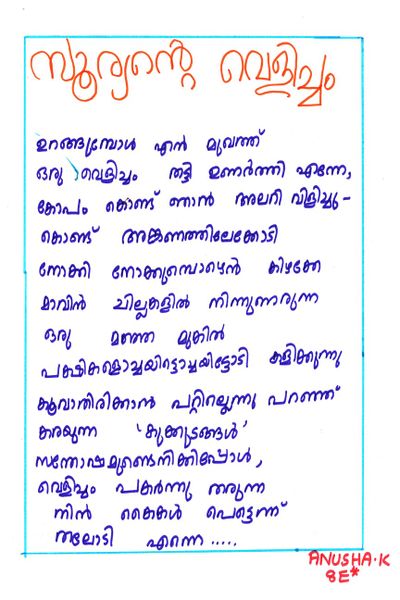 സൂര്യന്റെ വെളിച്ചം
ഉറങ്ങുമ്പോൾ എൻ മുഖത്ത്
ഒരു വെളിച്ചം തട്ടി ഉണർത്തി എന്നേ,
കോപം കൊണ്ട് ഞാൻ അലറി വിളിച്ചു-
കൊണ്ട് അങ്കണത്തിലേക്കോടി
നോക്കി നോക്കുമ്പൊഴെൻ കിഴക്കേ
മാവിൻ ചില്ലകളിൽ നിന്നുണരുന്ന
ഒരു മഞ്ഞ മുകിൽ
പക്ഷികളൊച്ചയിട്ടൊച്ചയിട്ടോടി കളിക്കുന്നു
കൂവാതിരിക്കാൻ പറ്റില്ലെന്നു പറഞ്ഞ്
കരയുന്ന 'കുക്കുടങ്ങൾ'
സന്തോഷമുണ്ടെനിക്കിപ്പോൾ,
വെളിച്ചം പകർന്നു തരുന്ന
നിൻ കൈകൾ പെട്ടെന്ന്
തലോടി എന്നെ .....
ANUSHA.K
8E*